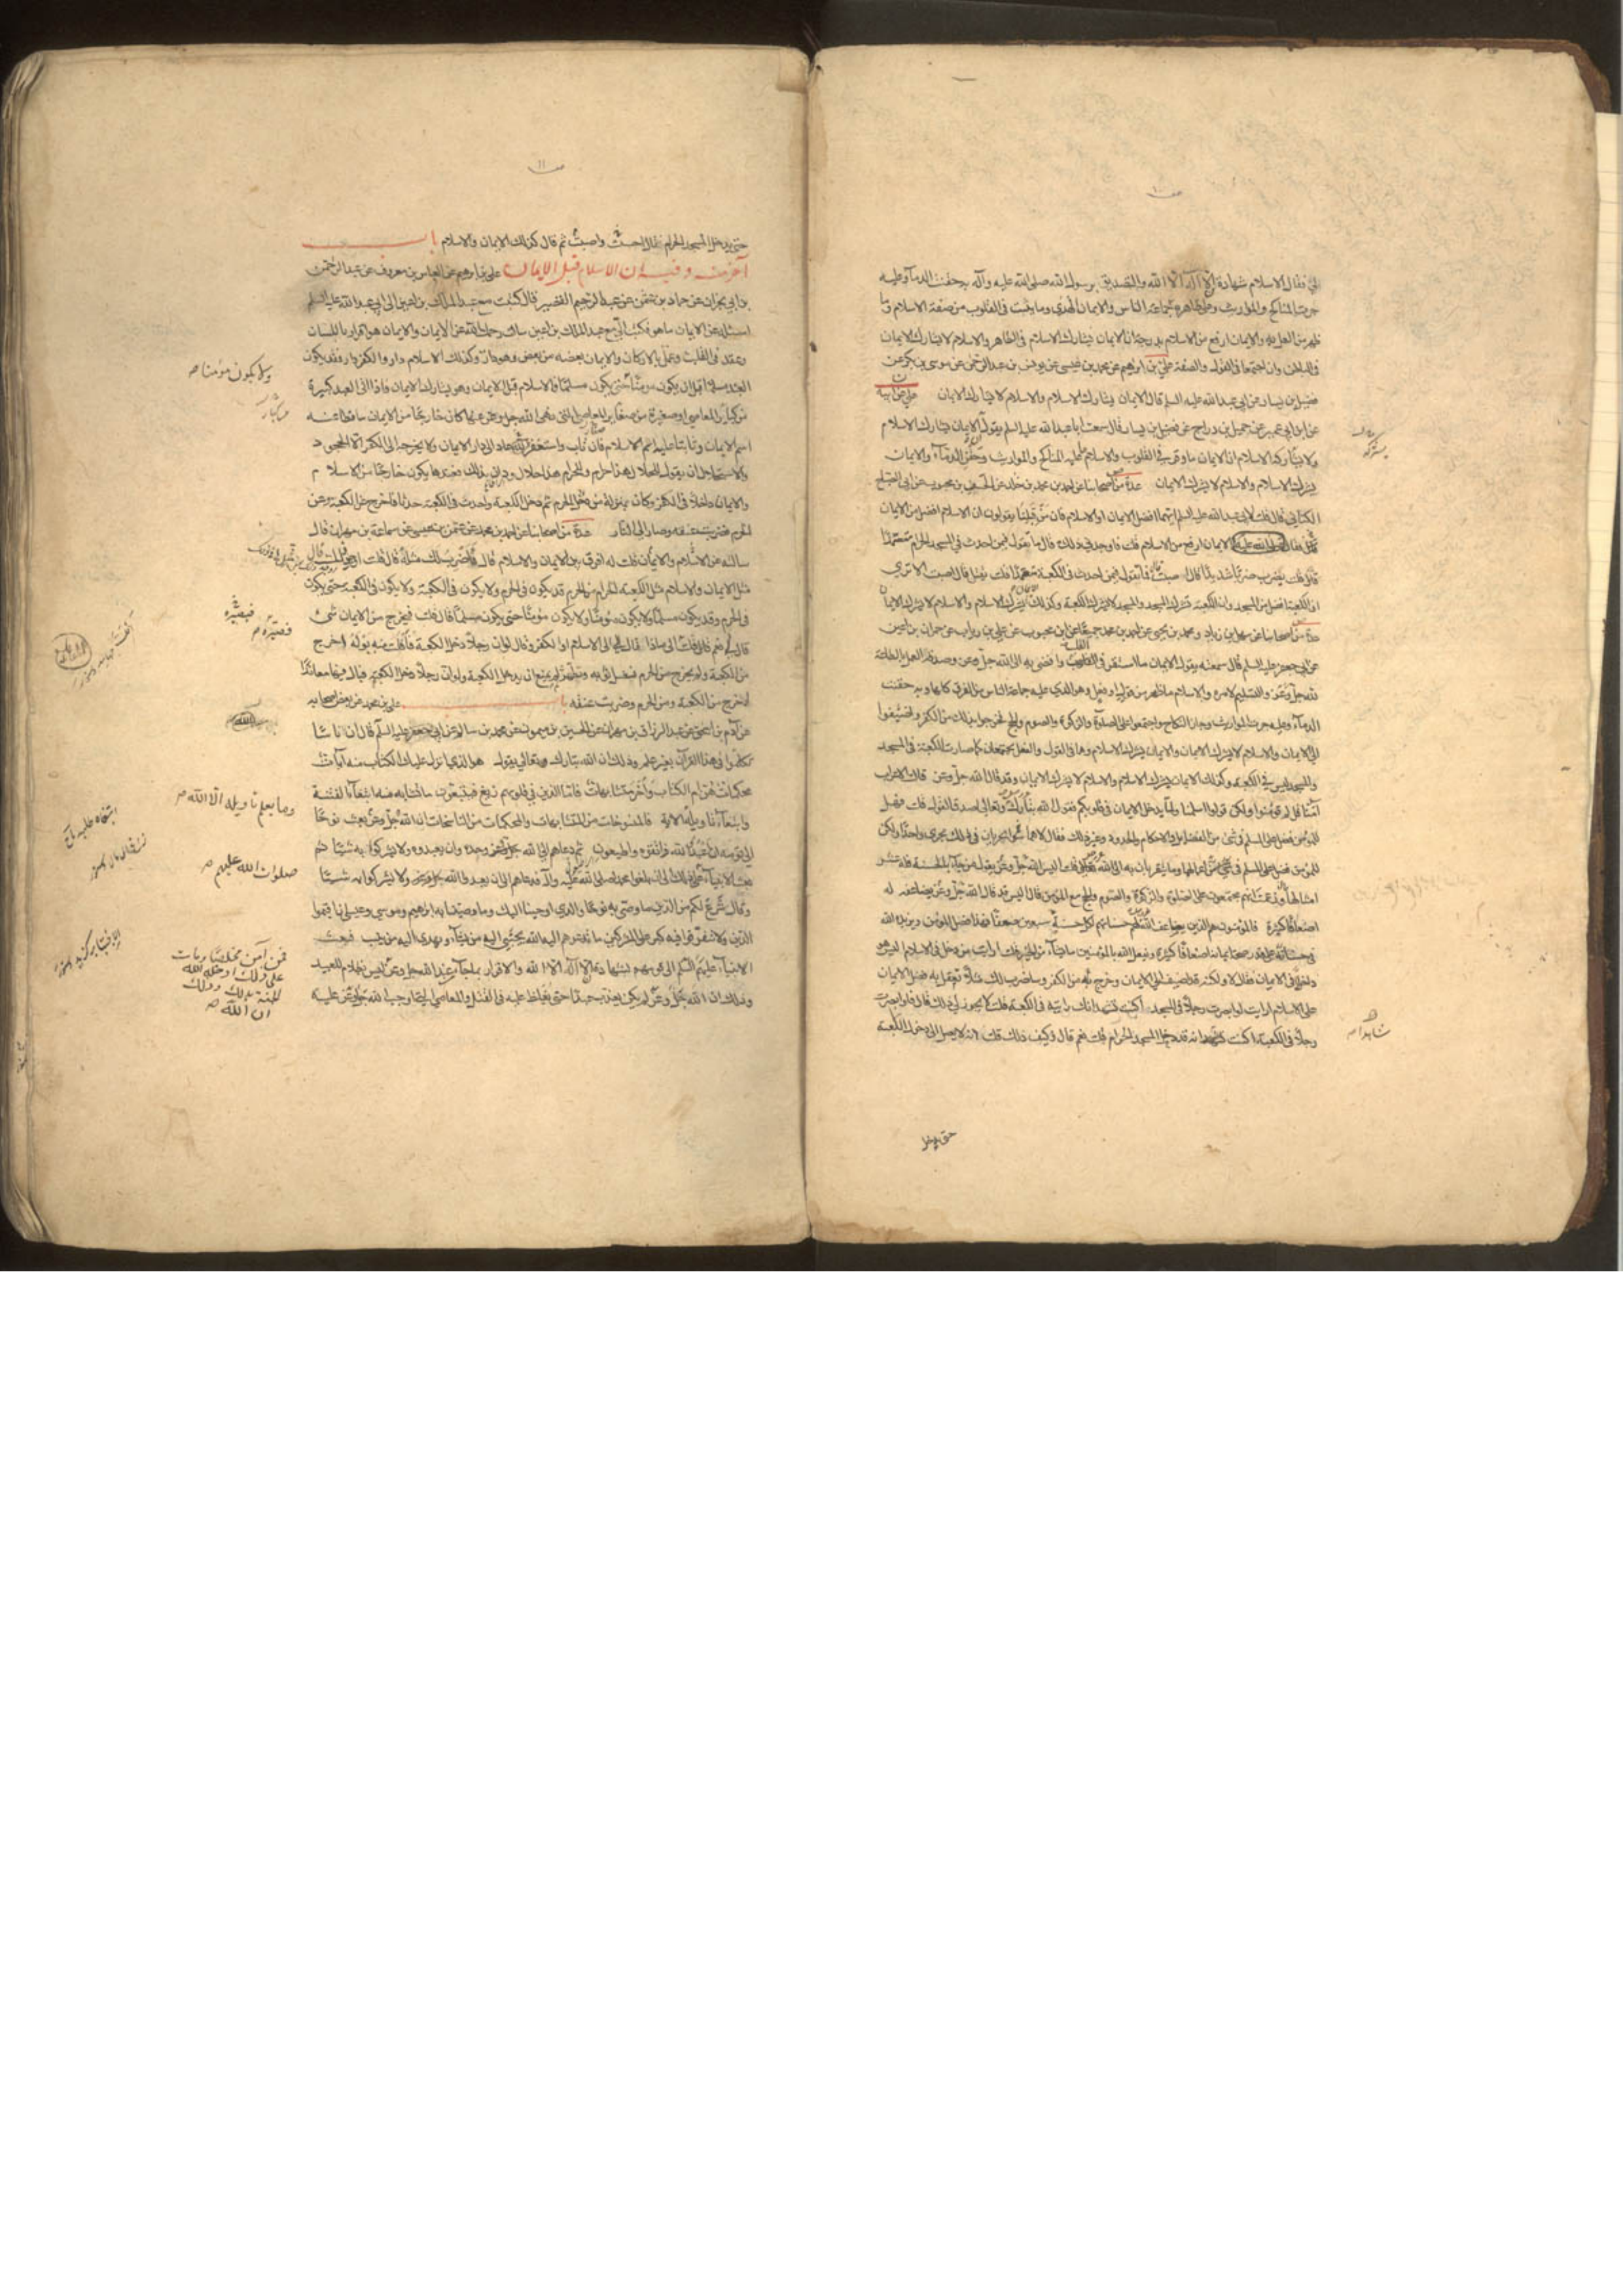 ١٠
لي فقال الاسلام شهادة ان لا اله الا الله والتصديق برسول الله صلى الله عليه وآله به حقنت الدماء وعليه
جرت المناكح والمواريث وعلى ظاهره جماعة الناس والايمان الهدى وما يثبت في القلوب من صفة الاسلام وما
ظهر من العمل به والايمان ارفع من الاسلام بدرجة ان الايمان يشارك الاسلام في الظاهر والاسلام لا يشارك الايمان
في الباطن وان اجتمعا في القول والصفة علي بن ابراهيم عن محمد بن عيسى عن يونس بن عبد الرحمن عن موسى بن بكر عن
فضيل بن يسار عن ابي عبد الله عليه السلم قال الايمان يشارك الاسلام والاسلام لا يشارك الايمان علي عن ابيه
عن ابن ابي عمير عن جميل بن دراج عن فضيل بن يسار قال سمعت ابا عبد الله عليه السلم يقول ان الايمان يشارك الاسلام
ولا يشاركه الاسلام ان الايمان ما وقر في القلوب والاسلام ما عليه المناكح والمواريث وحقن الدماء والايمان
يشرك الاسلام والاسلام لا يشرك الايمان عدة من اصحابنا عن احمد بن محمد بن خالد عن الحسن بن محبوب عن ابي الصباح
الكناني قال قلت لابي عبد الله عليه السلم ايهما افضل الايمان او الاسلام فان من قبلنا يقولون ان الاسلام افضل من الايمان
فقال الايمان ارفع من الاسلام قلت فاوجدني ذلك قال ما تقول فيمن احدث في المسجد الحرام متعمدا
قال قلت يضرب ضربا شديدا قال اصبت قال فما تقول فيمن احدث في الكعبة متعمدا قلت يقتل قال اصبت الا ترى
ان الكعبة افضل من المسجد وان الكعبة تشرك المسجد والمسجد لا يشرك الكعبة وكذلك الايمان يشرك الاسلام والاسلام لا يشرك الايمان
عدة من اصحابنا عن سهل بن زياد ومحمد بن يحيى عن احمد بن محمد جميعا عن ابن محبوب عن علي بن رئاب عن حمران بن اعين
عن ابي جعفر عليه السلم قال سمعته يقول الايمان ما استقر في القلب وافضى به الى الله جل وعز وصدقه العمل بالطاعة
لله جل وعز والتسليم لامره والاسلام ما ظهر من قول او فعل وهو الذي عليه جماعة الناس من الفرق كلها وبه حقنت
الدماء وعليه جرت المواريث وجاز النكاح واجتمعوا على الصلوة والزكوة والصوم والحج فخرجوا بذلك من الكفر واضيفوا
الى الايمان والاسلام لا يشرك الايمان والايمان يشرك الاسلام وهما في القول والفعل يجتمعان كما صارت الكعبة في المسجد
والمسجد ليس في الكعبة وكذلك الايمان يشرك الاسلام والاسلام لا يشرك الايمان وقد قال الله جل وعز قالت الاعراب
آمنا قل لم تؤمنوا ولكن قولوا اسلمنا ولما يدخل الايمان في قلوبكم فقول الله تبارك وتعالى اصدق القول قلت فهل
للمؤمن فضل على المسلم في شيء من الفضائل والاحكام والحدود وغير ذلك فقال لا هما يجريان في ذلك مجرى واحدا ولكن
للمؤمن فضل على المسلم في اعمالهما وما يتقربان به الى الله تعالى قلت اليس الله جل وعز يقول من جاء بالحسنة فله عشر
امثالها وزعمت انهم مجتمعون على الصلوة والزكوة والصوم والحج مع المؤمن قال اليس قد قال الله جل وعز يضاعفه له
اضعافا كثيرة فالمؤمنون هم الذين يضاعف الله لهم حسناتهم لكل حسنة سبعين ضعفا فهذا فضل المؤمن ويزيده الله
في حسناته على قدر صحة ايمانه اضعافا كثيرة ويفعل الله بالمؤمنين ما يشاء من الخير قلت ارايت من دخل في الاسلام اليس هو
داخلا في الايمان فقال لا ولكنه قد اضيف الى الايمان وخرج به من الكفر وساضرب لك مثلا تعقل به فضل الايمان
على الاسلام ارايت لو ابصرت رجلا في المسجد اكنت تشهد انك رايته في الكعبة قلت لا يجوز لي ذلك قال فلو ابصرت
رجلا في الكعبة اكنت تشهد انه قد دخل المسجد الحرام قلت نعم قال وكيف ذلك قلت انه لا يصل الى دخول الكعبة
حتى يدخل
شاهدا
١١
حتى يدخل المسجد الحرام فقال احسنت واصبت ثم قال كذلك الايمان والاسلام باب
آخر منه وفيه ان الاسلام قبل الايمان علي بن ابراهيم عن العباس بن معروف عن عبد الرحمن
بن ابي نجران عن حماد بن عثمن عن عبد الرحيم القصير قال كتبت مع عبد الملك بن اعين الى ابي عبد الله عليه السلم
اسئله عن الايمان ما هو فكتب الي مع عبد الملك بن اعين سالت رحمك الله عن الايمان والايمان هو اقرار باللسان
وعقد في القلب وعمل بالاركان والايمان بعضه من بعض وهو دار وكذلك الاسلام دار والكفر دار فقد يكون
العبد مسلما قبل ان يكون مؤمنا حتى يكون مسلما فالاسلام قبل الايمان وهو يشارك الايمان فاذا اتى العبد كبيرة
من كبائر المعاصي او صغيرة من صغائر المعاصي التي نهى الله جل وعز عنها كان خارجا من الايمان ساقطا عنه
اسم الايمان وثابتا عليه اسم الاسلام فان تاب واستغفر عاد الى دار الايمان ولا يخرجه الى الكفر الا الجحود
والاستحلال ان يقول للحلال هذا حرام وللحرام هذا حلال ودان بذلك فعندها يكون خارجا من الاسلام
والايمان داخلا في الكفر وكان بمنزلة من دخل الحرم ثم دخل الكعبة واحدث في الكعبة حدثا فاخرج عن الكعبة وعن
الحرم فضربت عنقه وصار الى النار عدة من اصحابنا عن احمد بن محمد عن عثمن بن عيسى عن سماعة بن مهران قال
سالته عن الاسلام والايمان قلت له افرق بين الايمان والاسلام قال فاضرب لك مثله قال قلت اورد ذلك قال
مثل الايمان والاسلام مثل الكعبة الحرام من الحرم قد يكون في الحرم ولا يكون في الكعبة ولا يكون في الكعبة حتى يكون
في الحرم وقد يكون مسلما ولا يكون مؤمنا ولا يكون مؤمنا حتى يكون مسلما قال قلت فيخرج من الايمان شيء
قال نعم قال قلت الى ماذا قال الى الاسلام او الكفر وقال لو ان رجلا دخل الكعبة فافلت منه بوله اخرج
من الكعبة ولم يخرج من الحرم فغسل ثوبه وتطهر لم يمنع ان يدخل الكعبة ولو ان رجلا دخل الكعبة فبال فيها معاندا
اخرج من الكعبة ومن الحرم وضربت عنقه باب علي بن محمد عن بعض اصحابه
عن آدم بن اسحق عن عبد الرزاق بن مهران عن الحسين بن ميمون عن محمد بن سالم عن ابي جعفر عليه السلم قال ان ناسا
تكلموا في هذا القرآن بغير علم وذلك ان الله تبارك وتعالى يقول هو الذي انزل عليك الكتاب منه آيات
محكمات هن ام الكتاب وأخر متشابهات فاما الذين في قلوبهم زيغ فيتبعون ما تشابه منه ابتغاء الفتنة
وابتغاء تاويله الاية فالمنسوخات من المتشابهات والمحكمات من الناسخات ان الله جل وعز بعث نوحا
الى قومه ان اعبدوا الله واتقوه واطيعون ثم دعاهم الى الله وحده وان يعبدوه ولا يشركوا به شيئا ثم
بعث الانبياء على ذلك الى ان بلغوا محمدا صلى الله عليه وآله فدعاهم الى ان يعبدوا الله ولا يشركوا به شيئا
وقال شرع لكم من الدين ما وصى به نوحا والذي اوحينا اليك وما وصينا به ابراهيم وموسى وعيسى ان اقيموا
الدين ولا تتفرقوا فيه كبر على المشركين ما تدعوهم اليه الله يجتبي اليه من يشاء ويهدي اليه من ينيب فبعث
الانبياء عليهم السلم الى قومهم بشهادة ان لا اله الا الله والاقرار بما جاء من عند الله جل وعز ليس بظلام للعبيد
وذلك ان الله جل وعز لم يكن يعذب عبدا حتى يغلظ عليه في القتل والمعاصي التي اوجب الله جل وعز عليه
ولا يكون مؤمنا
فبصره
وما يعلم تاويله الا الله
صلوات الله عليهم
فمن آمن مخلصا ومات
على ذلك ادخله الله
الجنة بذلك وذلك
ان الله